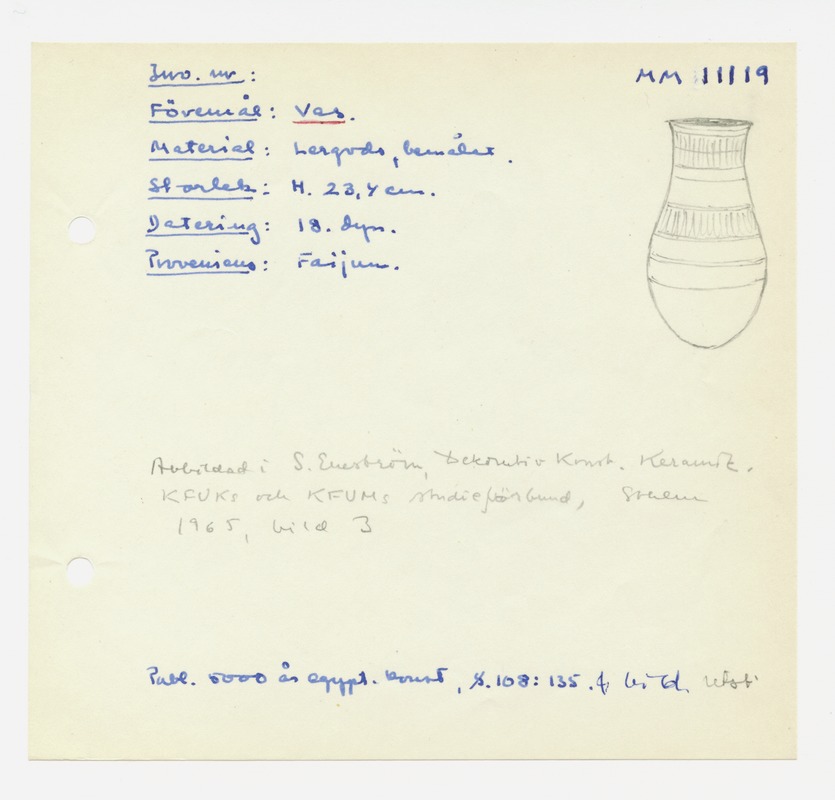 Inv. nr: MM 11119
Föremål: Vas.
Material: Lergods, bemålat.
Storlek: H. 23,4 cm.
Datering: 18. dyn.
Proveniens: Faijum.
Avbildad i S. Eneström, Dekorativ Konst. Keramik.
KFUKs och KFUMs studieförbund, Sthlm
1965, bild 3
Publ. 5000 år egypt. konst, s. 108: 135. bild